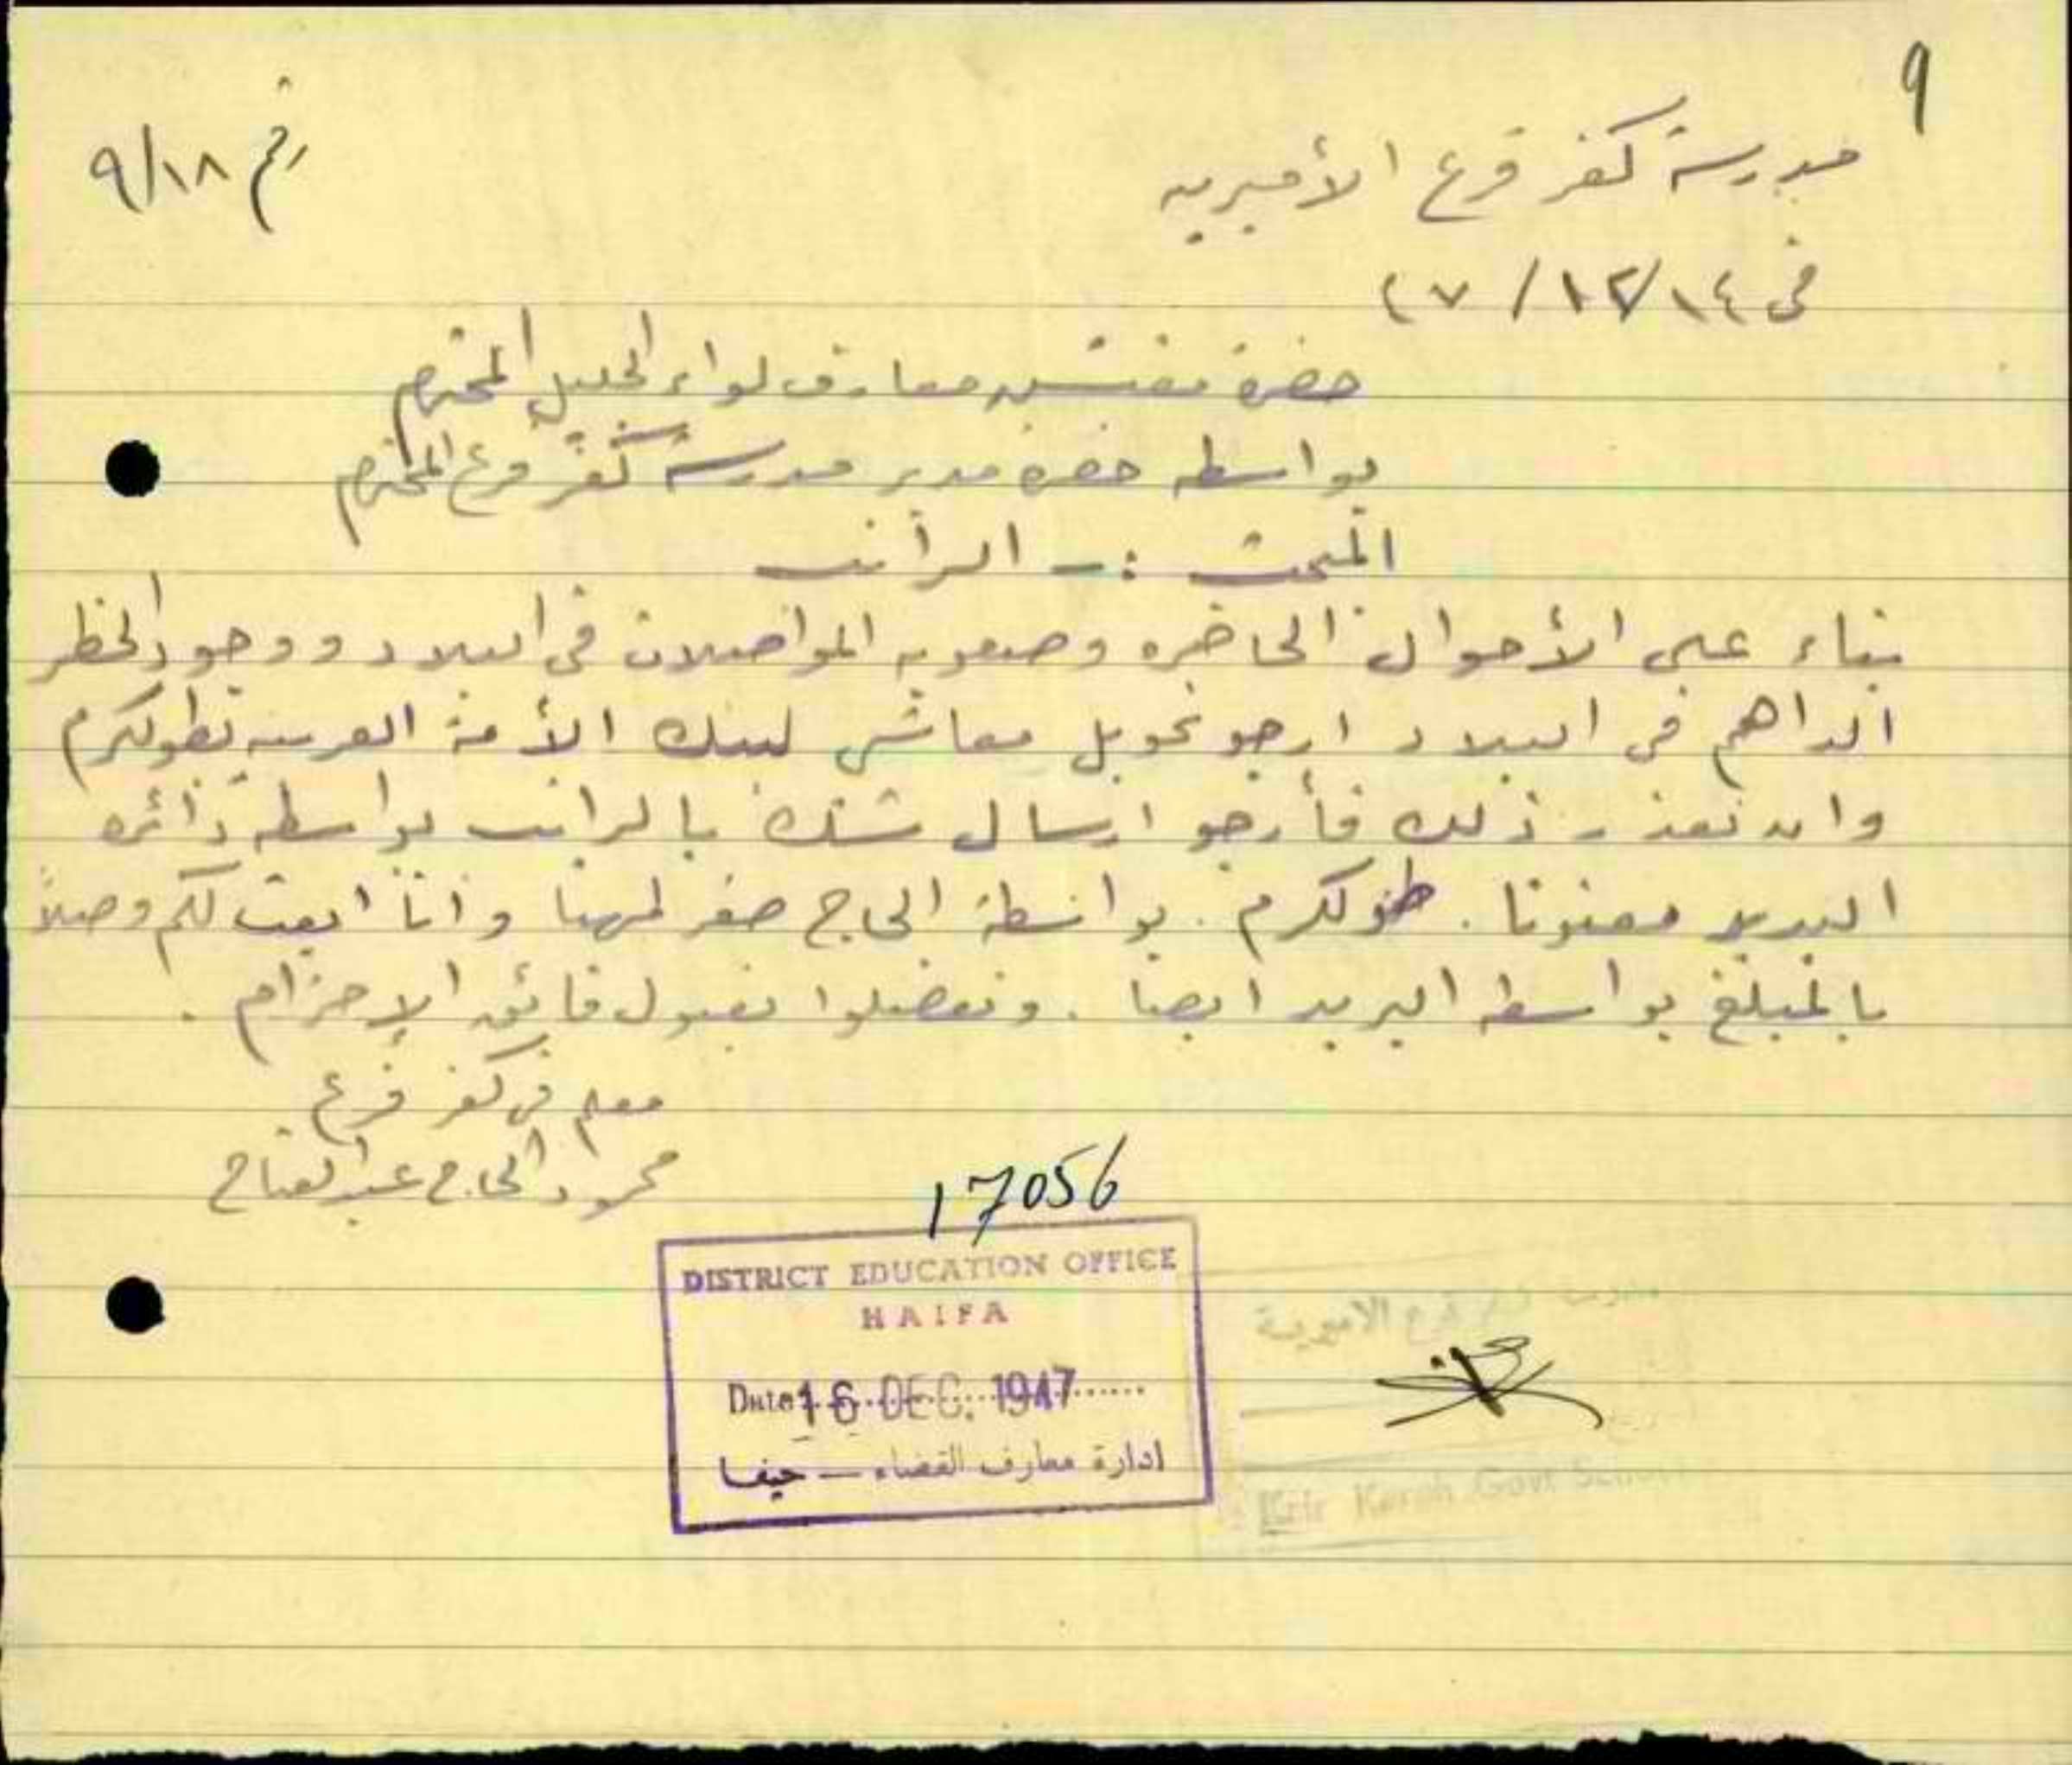 ٩
رقم ٩/١٨
مدرسة كفر قرع الأميريه
في ١٤/١٢/٤٧
حضرة مفتش معارف لواء الجليل المحترم
بواسطه حضرة مدير مدرسة كفر قرع المحترم
المبحث :- الراتب
بناء على الأحوال الحاضره وصعوبه المواصلات في البلاد ووجود الخطر
الداهم في البلاد ارجو تحويل معاشي لبنك الأمة العربيه بطولكرم
وان تعذر ذلك فأرجو ارسال شك بالراتب بواسطه دائره
البريد معنونا . طولكرم . بواسطة الحاج صقر لمهنا وانا ابعث لكم وصلاً
بالمبلغ بواسطه البريد ايضا . وتفضلوا بقبول فائق الاحترام .
معلم في كفر قرع
محمود الحاج عبد الفتاح
17056
DISTRICT EDUCATION OFFICE
HAIFA
Date 16 DEC. 1947
ادارة معارف القضاء — حيفا
مدرسة كفر قرع الاميرية
Kefr Karah Govt School